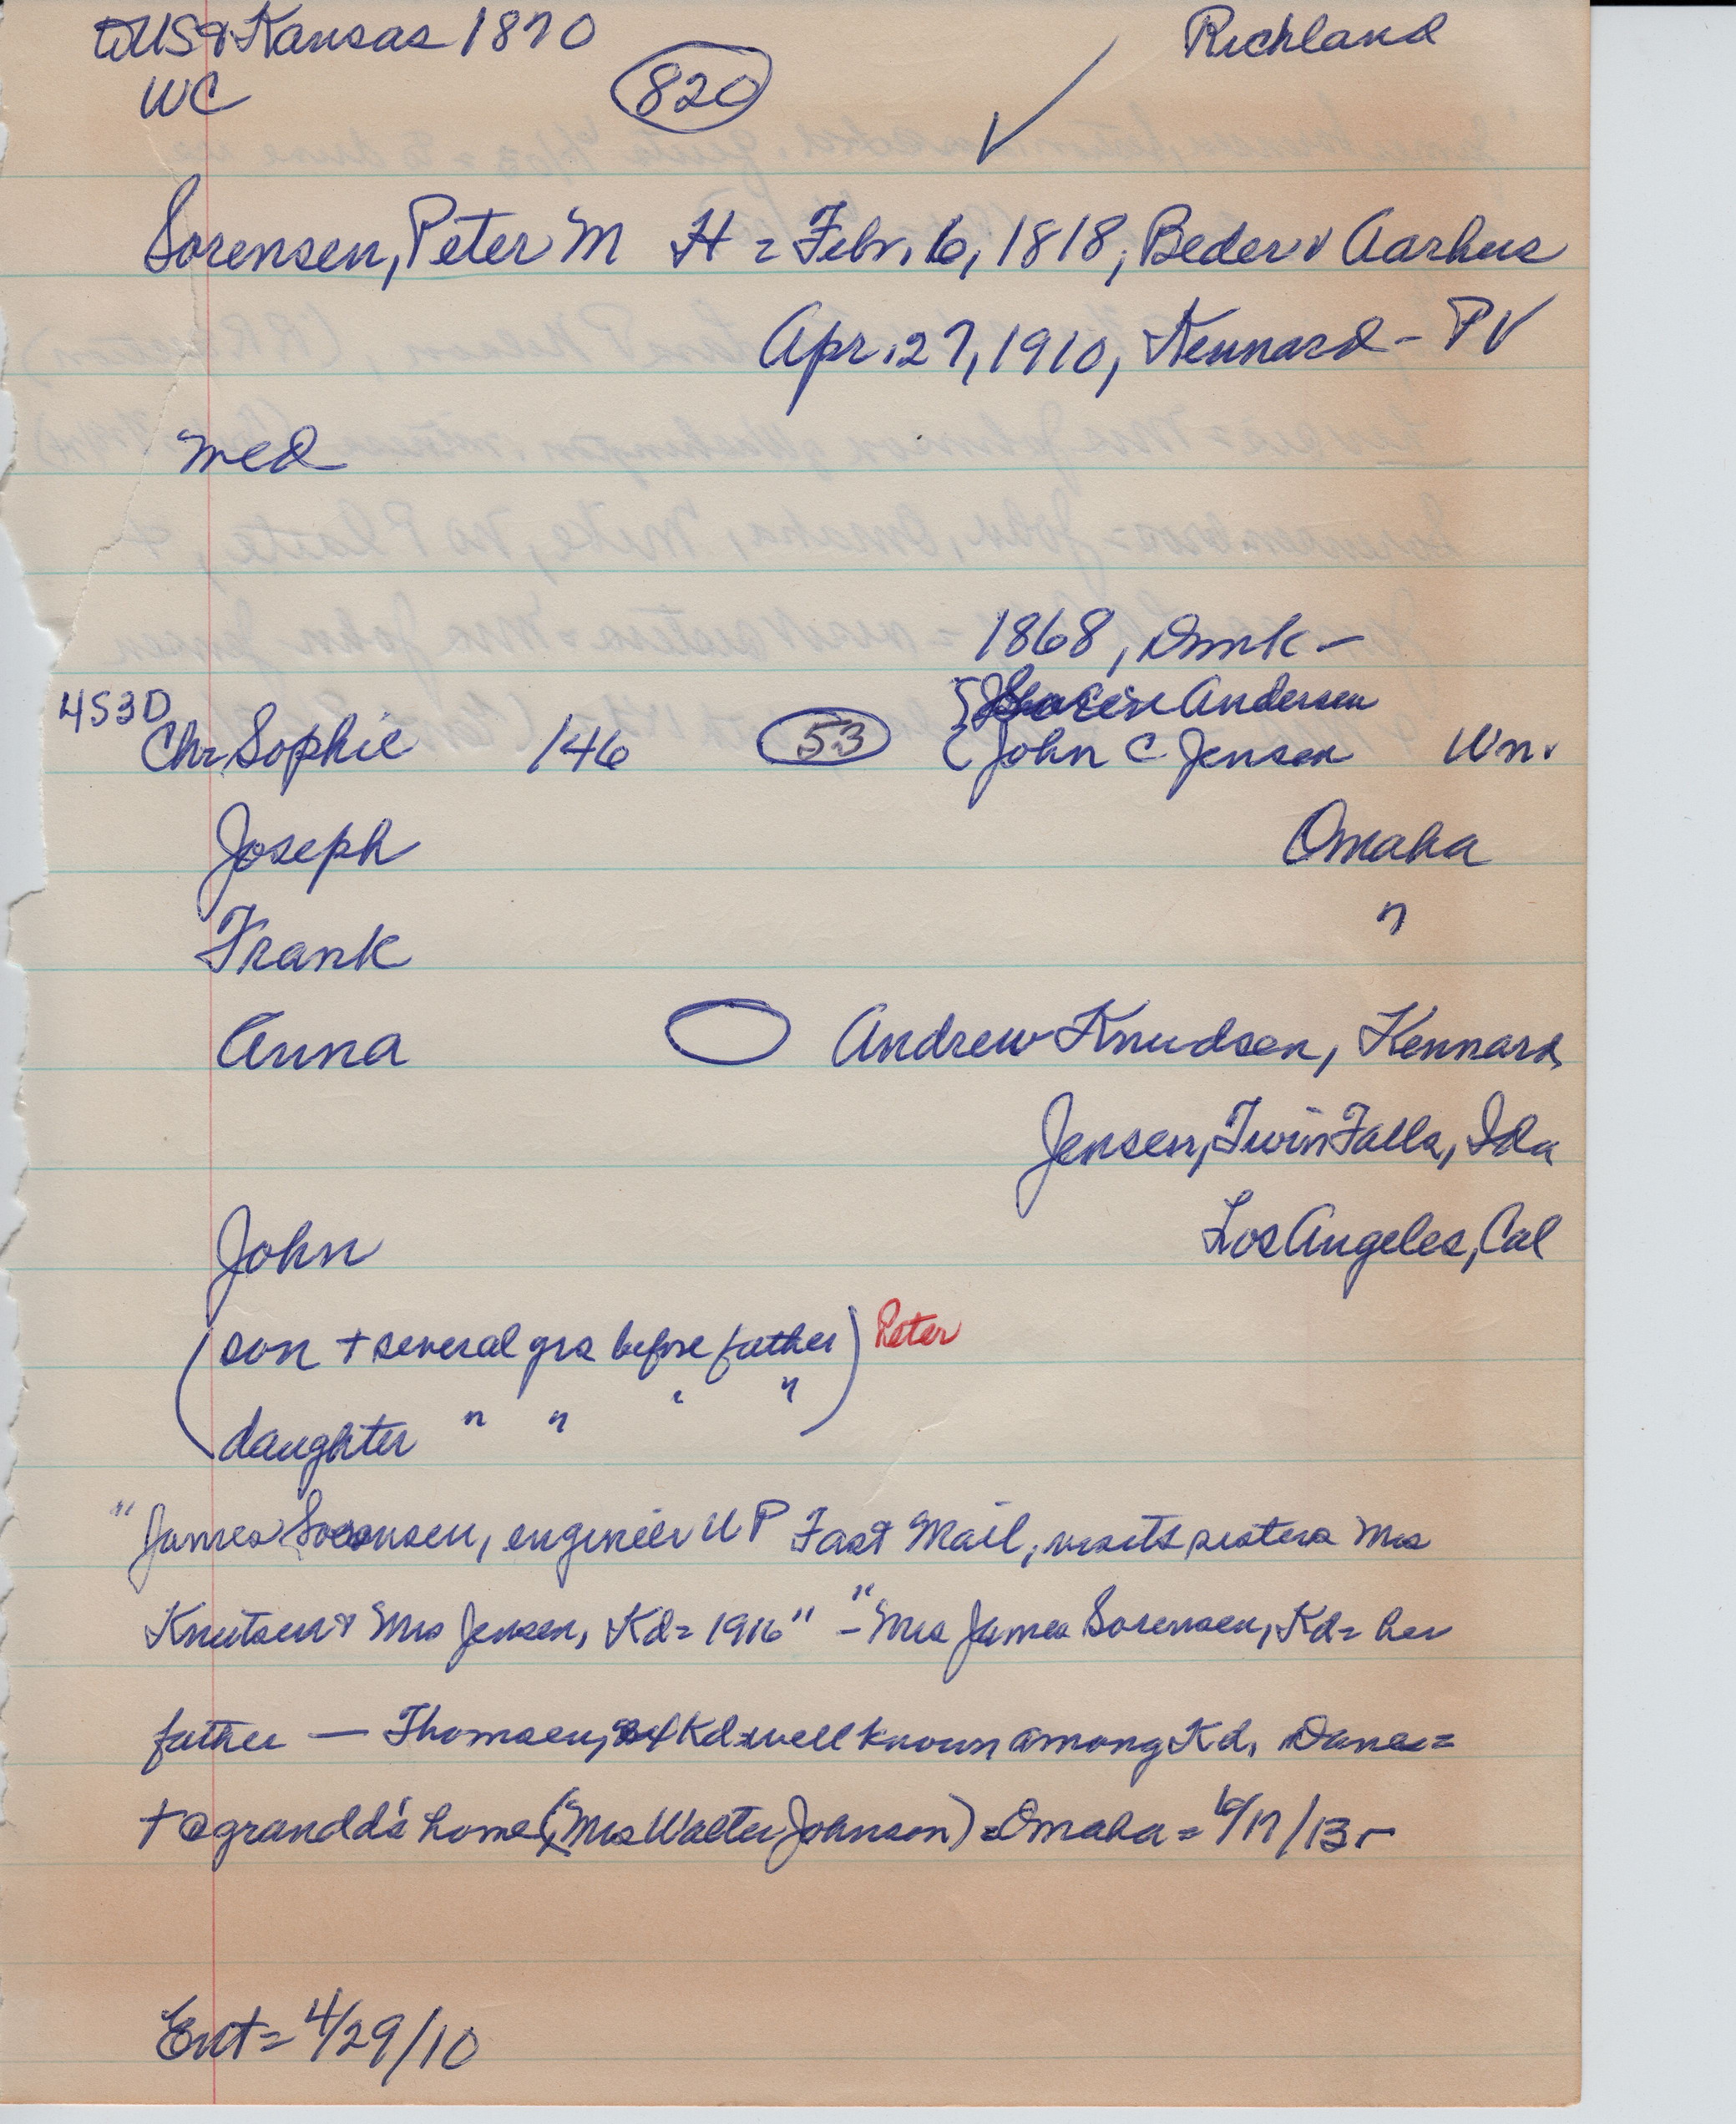 to US & Kansas 1870 Richland
WC 820 ✓
Sorensen, Peter M H = Febr. 6, 1818, Beder v Aarhus
Apr. 27, 1910, Kennard - PV
med
1868, Dmk -
4S3D Andersen
Chr Sophie 146 53 John C Jensen Wn.
Joseph Omaha
Frank "
Anna Andrew Knudsen, Kennard
Jensen, Twin Falls, Ida
John Los Angeles, Cal
(son + several yrs before father) Peter
daughter " " " "
"James Sorensen, engineer UP Fast Mail, visits sisters Mrs
Knutsen & Mrs Jensen, Kd = 1916" - "Mrs James Sorensen, Kd = her
father — Thomsen, Kd = well known among Kd. Danes =
+ @ grandd's home (Mrs Walter Johnson) = Omaha = 6/17/13 -
Ent = 4/29/10